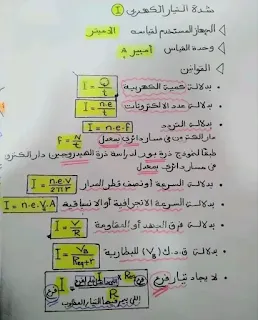 شدة التيار الكهربي I
الجهاز المستخدم لقياسه الأميتر
وحدة القياس أمبير A
القوانين
بدلالة كمية الكهربية I = Q/t
بدلالة عدد الالكترونات I = n.e/t
بدلالة التردد I = n.e.f
دار إلكترون في مسار دائري بمعدل f = N/t
طبقا لنموذج ذرة بور لدراسة ذرة الهيدروجين دار الكترون
في مسار دائري بمعدل
بدلالة السرعة ونصف قطر المدار I = n.e.v/2πr
بدلالة السرعة الانجرافية أو الانسياقية I = n.e.V.A
بدلالة فرق الجهد أو المقاومة I = V/R
بدلالة ق.د.ك (VB) للبطارية I = VB/Req+r
لا يجاد تيار فرع I فرع = I × Req / R فرع